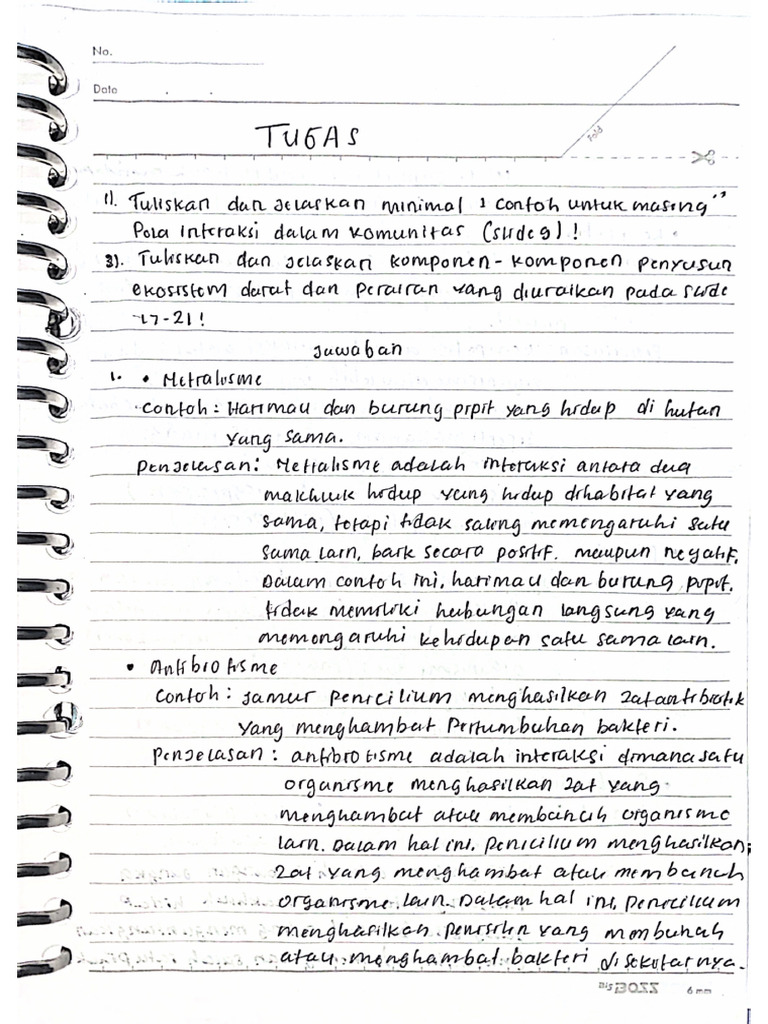 No.
Date
Fold
TUGAS
1). Tuliskan dan jelaskan minimal 1 contoh untuk masing"
Pola interaksi dalam komunitas (slide 9)!
3). Tuliskan dan jelaskan komponen-komponen penyusun
ekosistem darat dan perairan yang diuraikan pada slide
17-21!
Jawaban
1. • Netralisme
Contoh: Harimau dan burung pipit yang hidup di hutan
yang sama.
Penjelasan: Netralisme adalah interaksi antara dua
makhluk hidup yang hidup dihabitat yang
sama, tetapi tidak saling memengaruhi satu
sama lain, baik secara positif. maupun negatif.
Dalam contoh ini, harimau dan burung pipit.
tidak memiliki hubungan langsung yang
memengaruhi kehidupan satu sama lain.
• Antibiotisme
Contoh: Jamur Penicilium menghasilkan zat antibiotik
yang menghambat Pertumbuhan bakteri.
Penjelasan: antibiotisme adalah interaksi dimana satu
organisme menghasilkan zat yang
menghambat atau membunuh organisme
lain. Dalam hal ini, Penicilium menghasilkan,
zat yang menghambat atau membunuh
organisme lain. Dalam hal ini, Penicilium
menghasilkan penisilin yang membunuh
atau menghambat bakteri disekitarnya.
BIG BOSS 6 mm